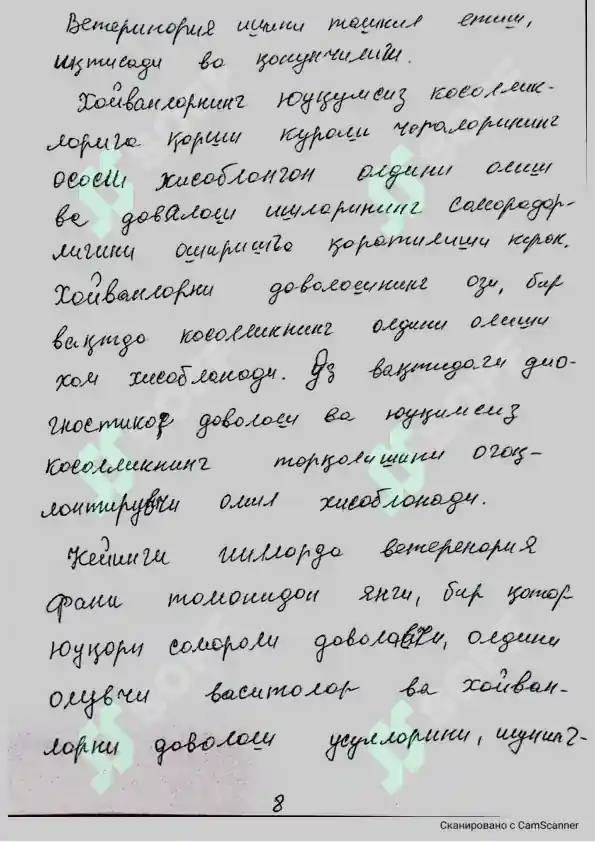 Ветеринория ишини ташкил етиш,
иқтисади ва қонунчилиги.
Хойванлорнинг юқумсиз косоллик-
лорига қорши куроли чоралорининг
ососи хисоблонгон олдини олиш
ва довалош ишлорининг самородор-
лигини оширишга қоратилиши керок.
Хойванлорни доволосининг ози, бир
вақтдо косолликнинг олдини олиши
хом хисоблонади. Ўз вақтидаги дио-
гностикоғ доволош ва юқимсиз
косолликнинг торқолишини огоҳ-
лонтирувчи омил хисоблонади.
Кейинги йиллордо ветеренория
фани томонидон янги, бир қотор
юуқори соморали даволавчи, олдини
олувчи васитолор ва хойван-
лорни доволош усуллорини, шунинг-
8
Сканировано с CamScanner